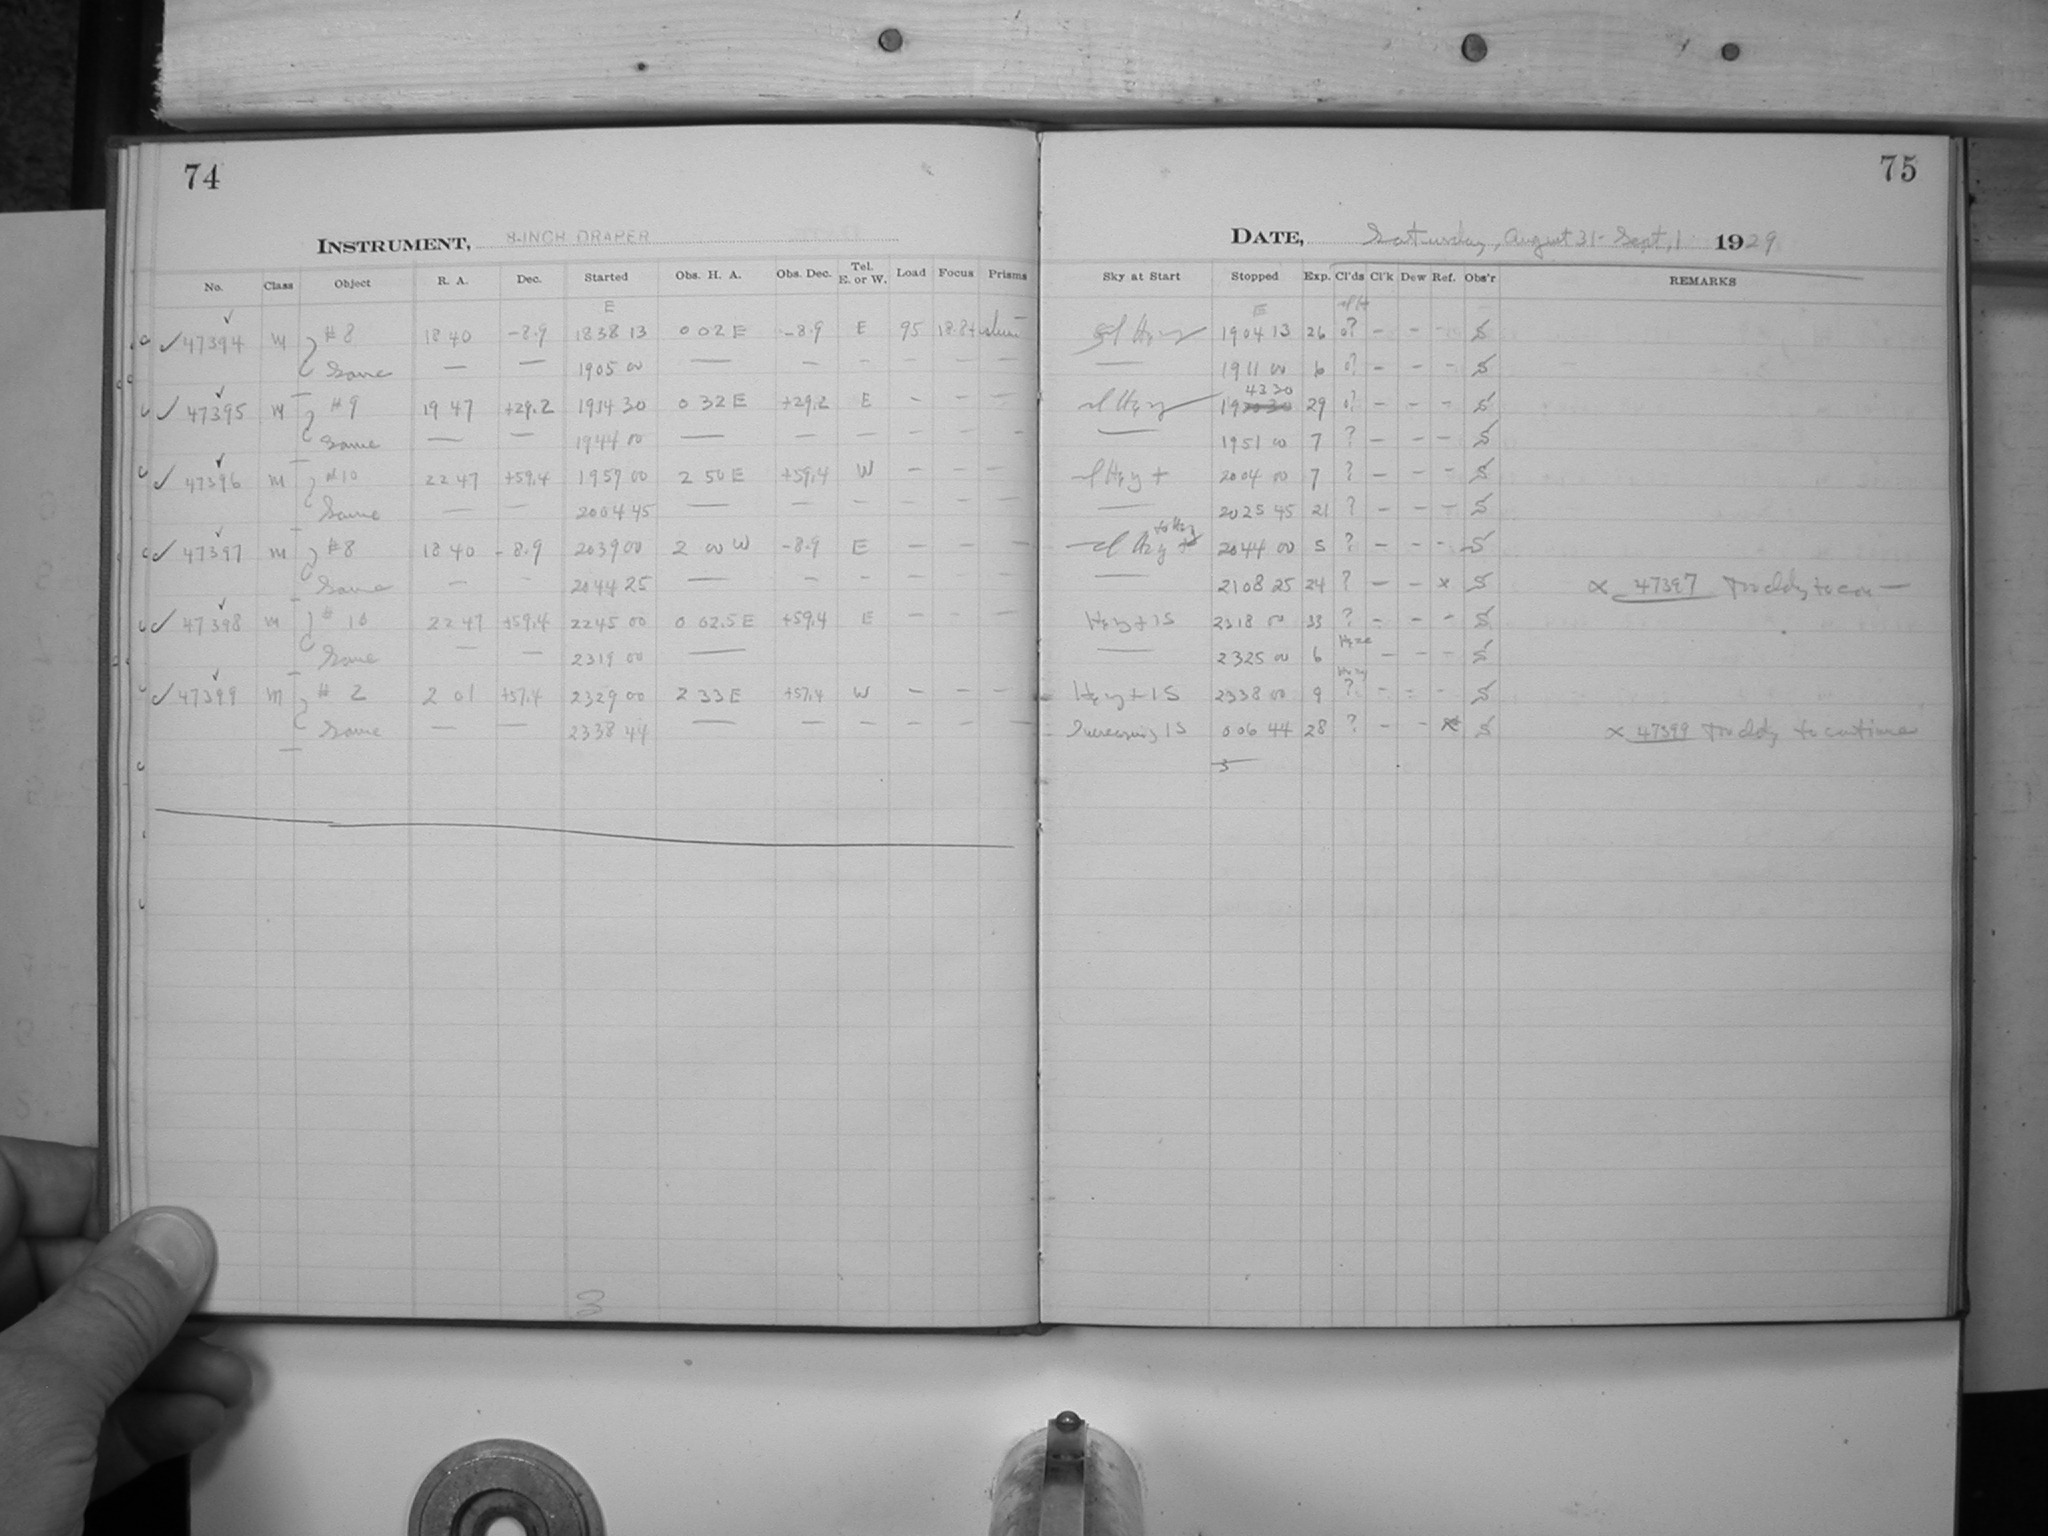 74
INSTRUMENT, 8-INCH DRAPER
No. Class Object R. A. Dec. Started Obs. H. A. Obs. Dec. Tel. E. or W. Load Focus Prisms
E
47394 M #8 18 40 -8.9 1838 13 0 02 E -8.9 E 95 18.8+
Same — — 1905 00 — — — — — —
47395 M #9 19 47 +29.2 1914 30 0 32 E +29.2 E - - -
Same — — 1944 00 — — — — — -
47396 M #10 22 47 +59.4 1959 00 2 50 E +59.4 W - - —
Same — — 2004 45 — — — — — —
47397 M #8 18 40 -8.9 2039 00 2 00 W -8.9 E — — —
Same — — 2044 25 — - - - - -
47398 M #10 22 47 +59.4 2245 00 0 02.5 E +59.4 E - - —
Same — — 2319 00 —
47399 M #2 2 01 +57.4 2329 00 2 33 E +57.4 W — — —
Same — — 2338 44 — — — — — —
3
75
DATE, Saturday, August 31 - Sept, 1 1929
Sky at Start Stopped Exp. Cl'ds Cl'k Dew Ref. Obs'r REMARKS
E
sl Hzy 1904 13 26 0? - - - S
— 1911 00 6 0? - - - S
43 30
sl Hzy 19 29 0? - - - S
— 1951 00 7 ? - - - S
sl Hzy + 2004 00 7 ? - - - S
— 2025 45 21 ? - - - S
to Hzy
sl Hzy + 2044 00 5 ? - - - S
— 2108 25 24 ? - - x S x 47397 Truddy to con —
Hzy + IS 2318 00 33 ? - - - S
— 2325 00 6 Haze - - - S
Hzy
Hzy + IS 2338 00 9 ? - - - S
Increasing IS 0 06 44 28 ? - - x S x 47399 to continue
3